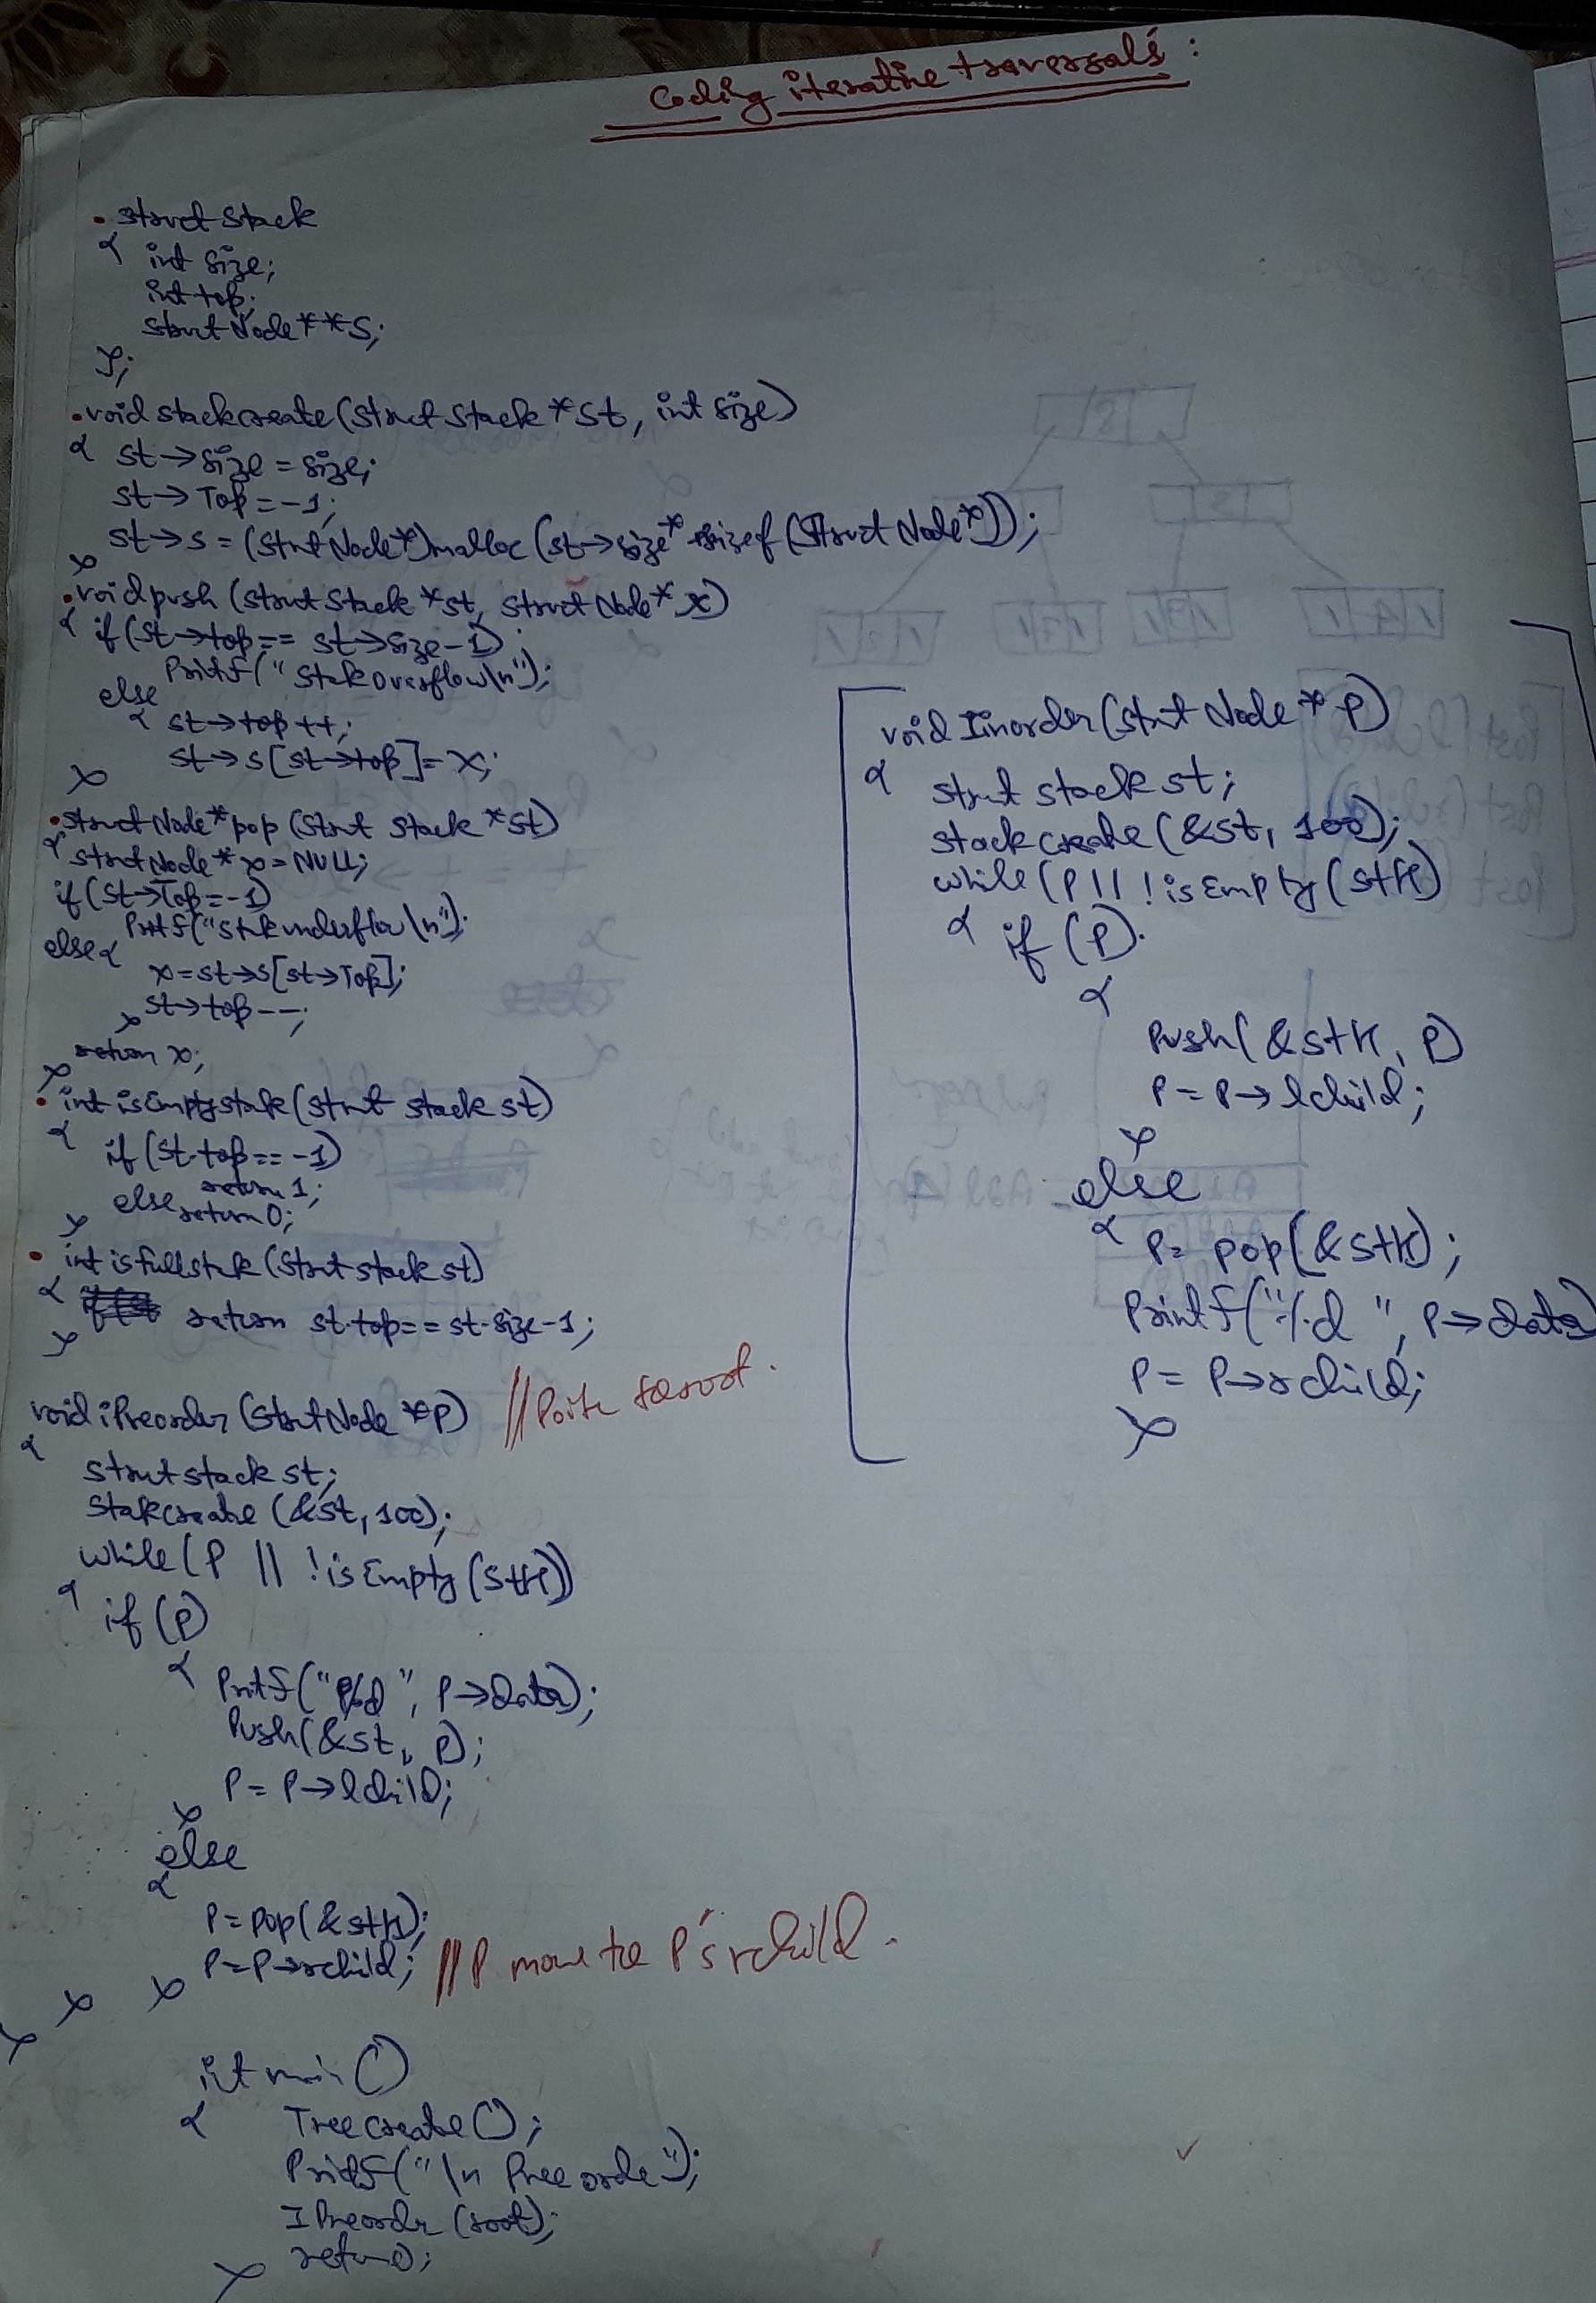 Coding iterative traversals :
• struct Stack
{ int size;
int top;
struct Node**s;
};
• void stackcreate (struct Stack *st, int size)
{ st->size = size;
st->Top = -1;
st->s = (struct Node*)malloc (st->size* sizeof (struct Node*));
}
• void push (struct Stack *st, struct Node* x)
{ if (st->top == st->size-1)
Printf(" Stak overflow\n");
else
{ st->top++;
st->s[st->top]=x;
}
• struct Node* pop (strut Stack *st)
{ struct Node* x = NULL;
if (st->Top=-1)
Printf("stak underflow\n");
else {
x=st->s[st->Top];
st->top--;
}
return x;
}
• int isEmptystak (strut stack st)
{ if (st.top == -1)
return 1;
else return 0;
}
• int isfullstak (strut stack st)
{ return st.top==st.size-1;
}
void iPreorder (strut Node *P)
{
strut stack st;
Stakcreate (&st, 100);
while (P || !isEmpty (stk))
{ if (P)
{ Printf("%d", P->data);
Push(&st, P);
P = P->lchild;
}
else
{
P=pop(&stk);
P=P->rchild; //P move to P's rchild.
} }
}
int main ()
{ Treecreate ();
Printf(" \n Preeorde");
IPreordr (root);
retur 0;
}
void Iinorder (strut Node * P)
{ strut stack st;
stack create (&st, 100);
while (P || !isEmpty (stk)
{ if (P)
{
Push(&stk, P)
P = P->lchild;
}
else
{ P= pop(&stk);
Printf("%d ", P->data)
P= P->rchild;
}